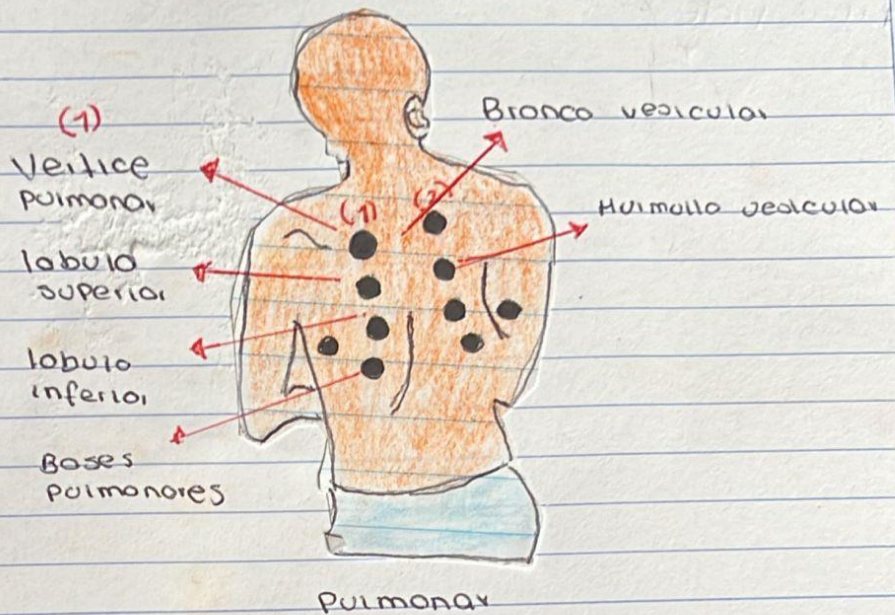 (1)
Vertice
pulmonar
lobulo
superior
lobulo
inferior
Bases
pulmonares
(1)
(2)
Bronco vesicular
Murmullo vesicular
Pulmonar